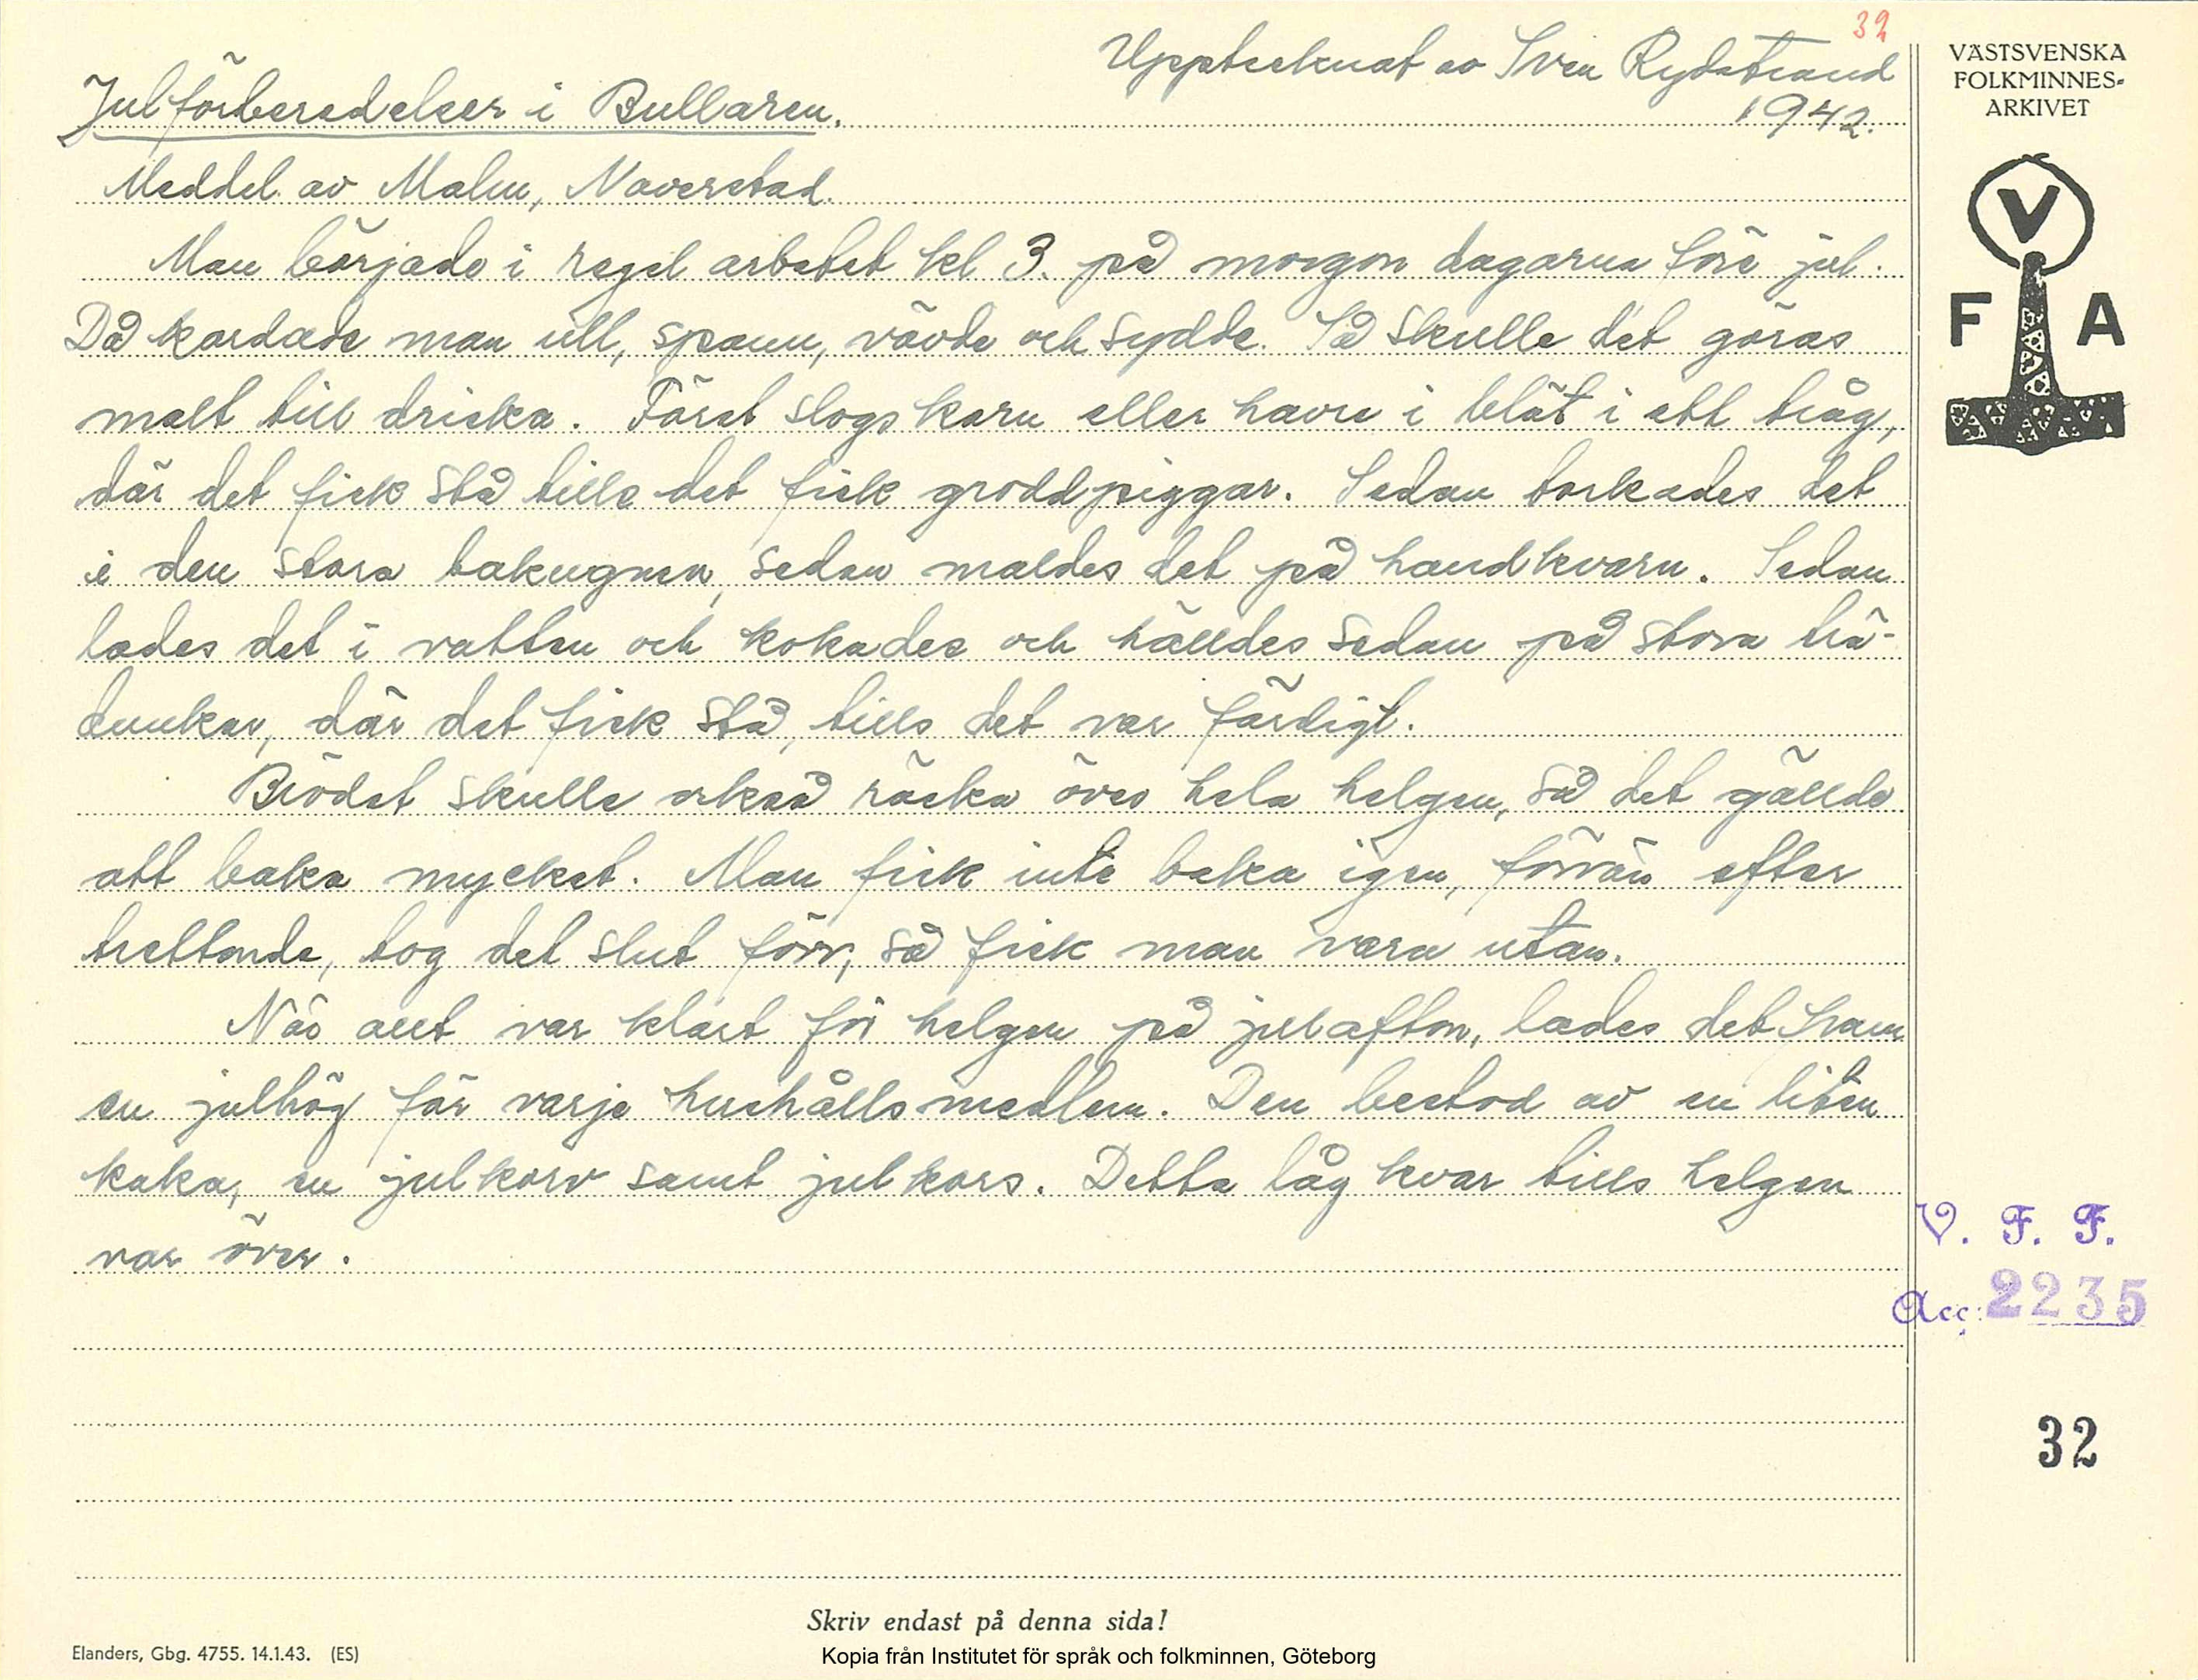 32
Upptecknat av Sven Rydstrand
1942.
Julförberedelser i Bullaren.
Meddel. av Malm, Naverstad.
Man började i regel arbetet kl 3. på morgon dagarna före jul.
Då kardade man ull, spann, vävde och sydde. Så skulle det göras
malt till dricka. Först slogs korn eller havre i blöt i ett tråg,
där det fick stå tills det fick groddpiggar. Sedan torkades det
i den stora bakugnen, sedan maldes det på handkvarn. Sedan
lades det i vatten och kokades och hälldes sedan på stora trä-
dunkar, där det fick stå, tills det var färdigt.
Brödet skulle också räcka över hela helgen, så det gällde
att baka mycket. Man fick inte baka igen, förrän efter
trettonde, tog det slut förr, så fick man vara utan.
När allt var klart för helgen på julafton, lades det fram
en julhög för varje hushållsmedlem. Den bestod av en liten
kaka, en julkorv samt julkors. Detta låg kvar tills helgen
var över.
VÄSTSVENSKA
FOLKMINNES-
ARKIVET
V
F A
V. F. F.
Acc: 2235
32
Skriv endast på denna sida!
Elanders, Gbg. 4755. 14.1.43. (ES)
Kopia från Institutet för språk och folkminnen, Göteborg